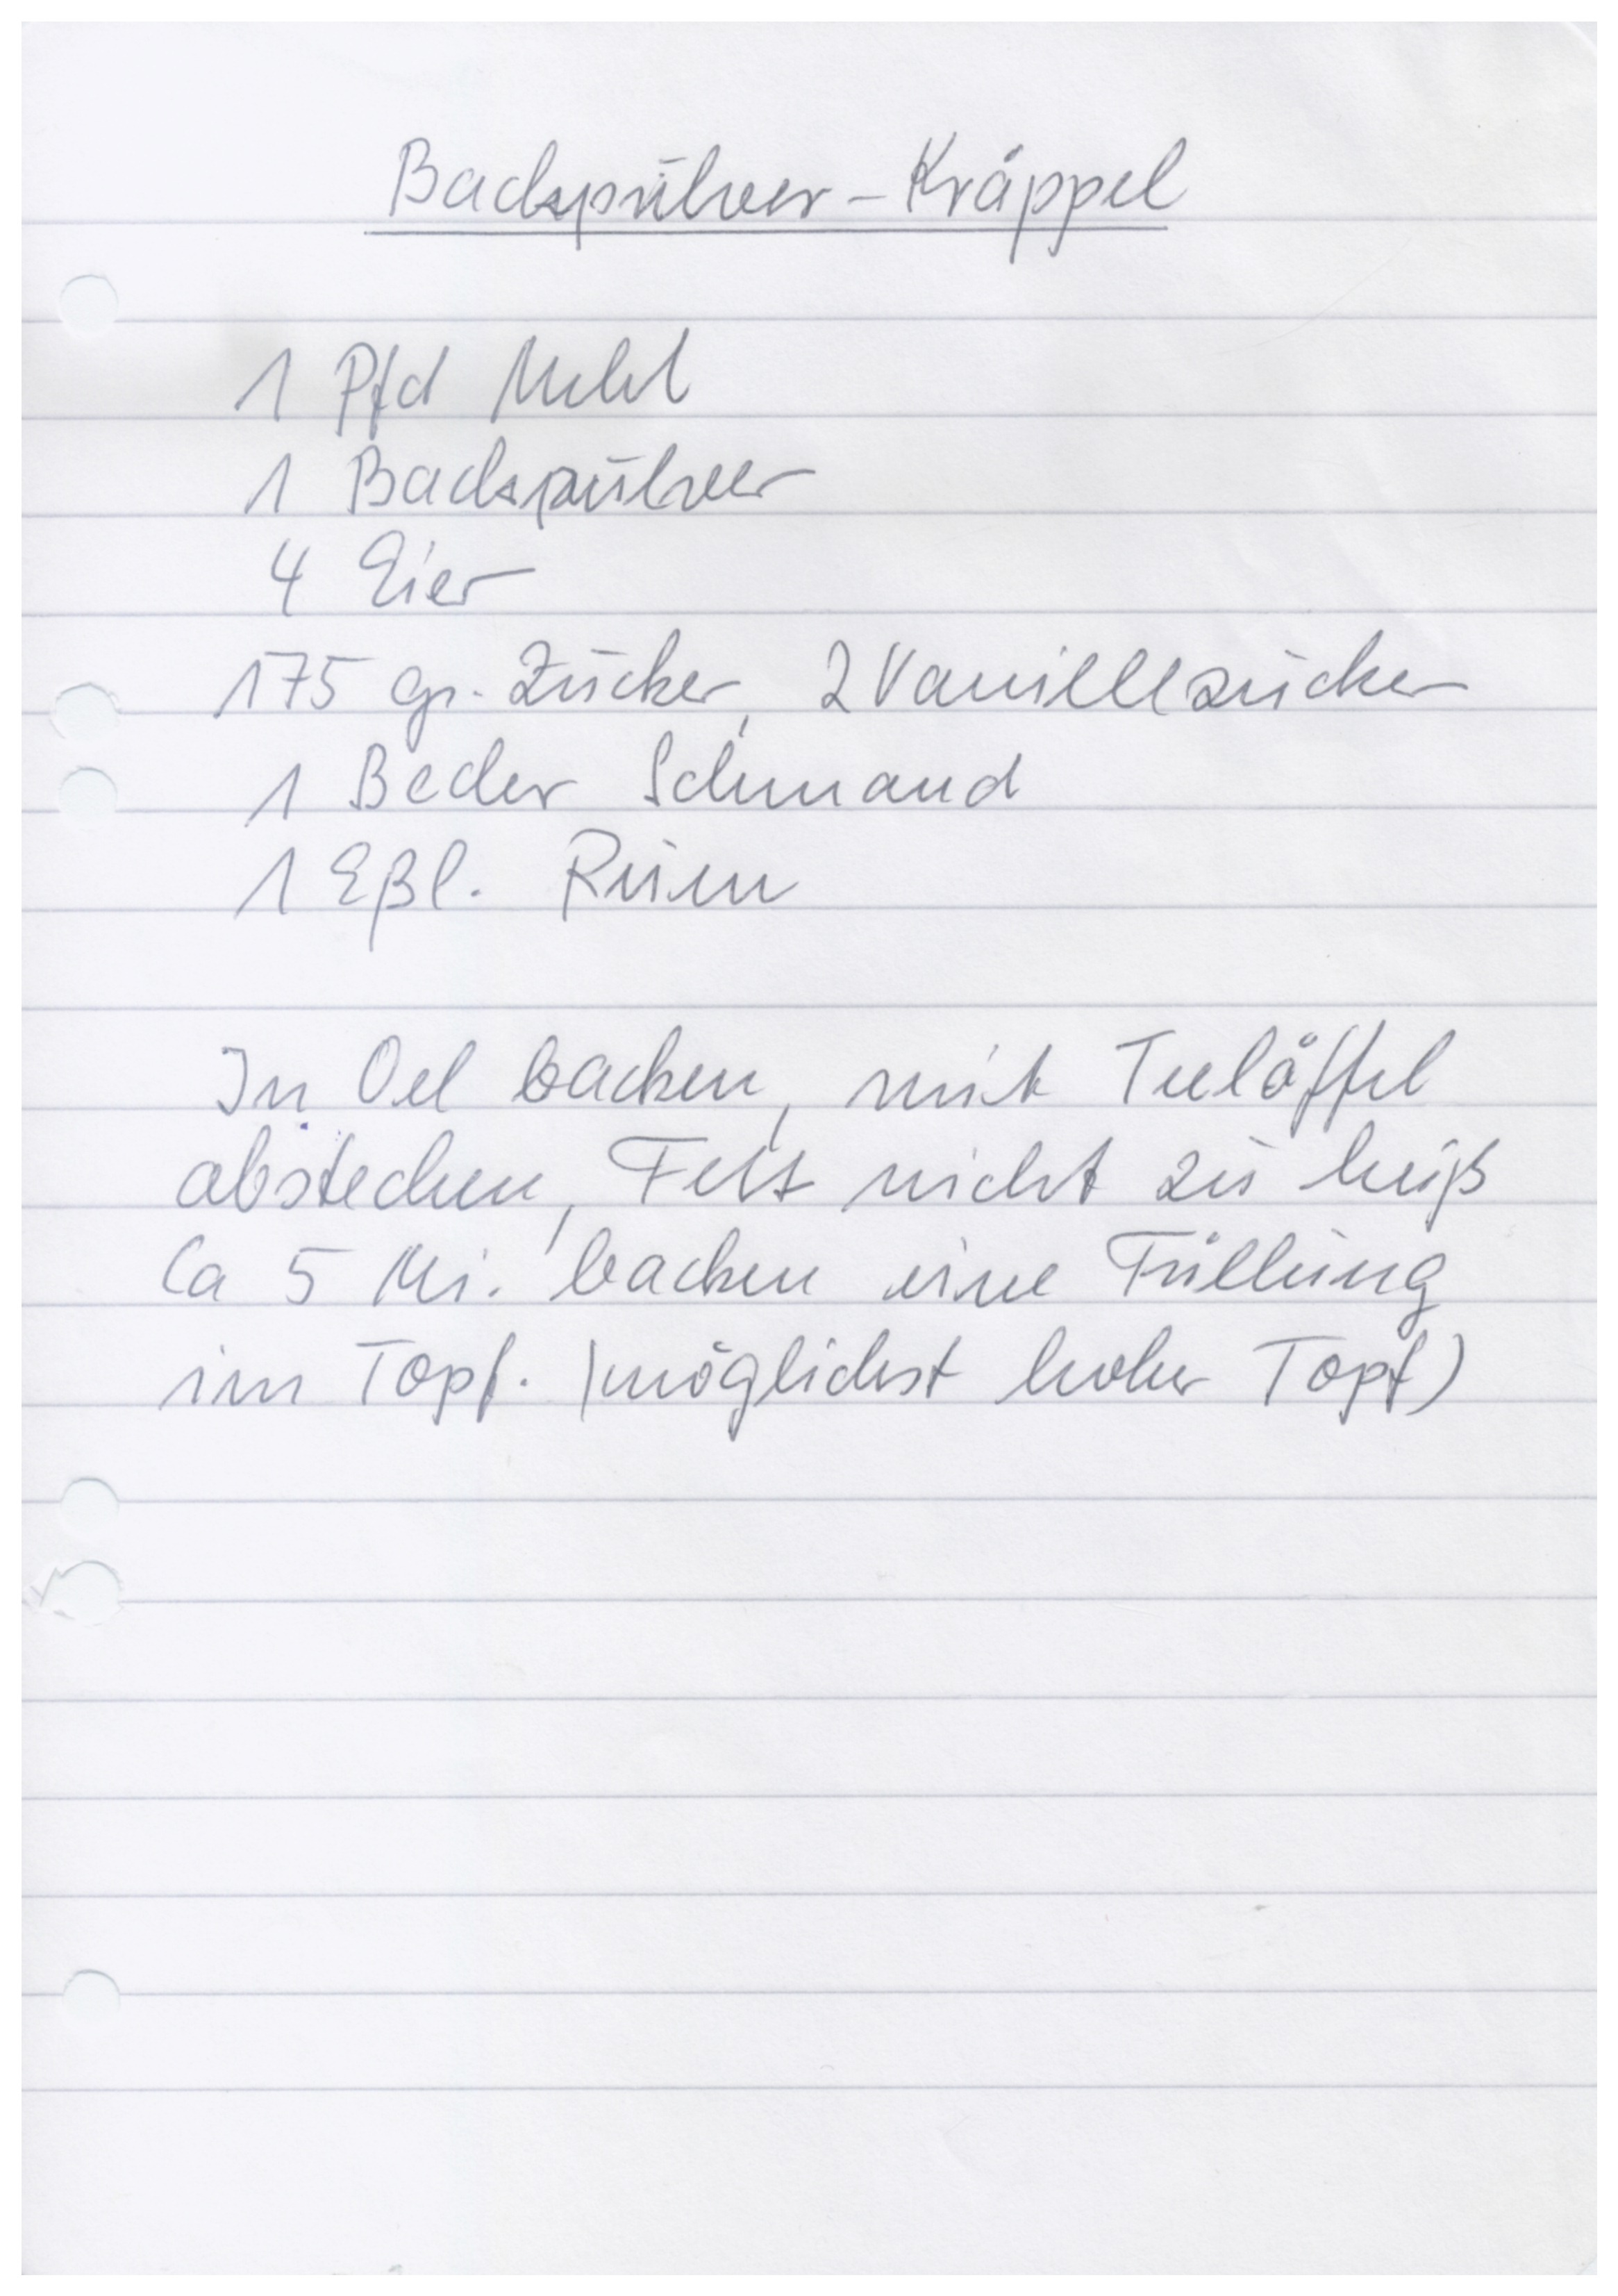 Backpulver-Kräppel
1 Pfd Mehl
1 Backpulver
4 Eier
175 gr. Zucker, 2 Vanillezucker
1 Becher Schmand
1 Eßl. Rum
In Oel backen, mit Teelöffel
abstechen, Fett nicht zu heiß
Ca 5 Mi. backen eine Füllung
im Topf. (möglichst hoher Topf)